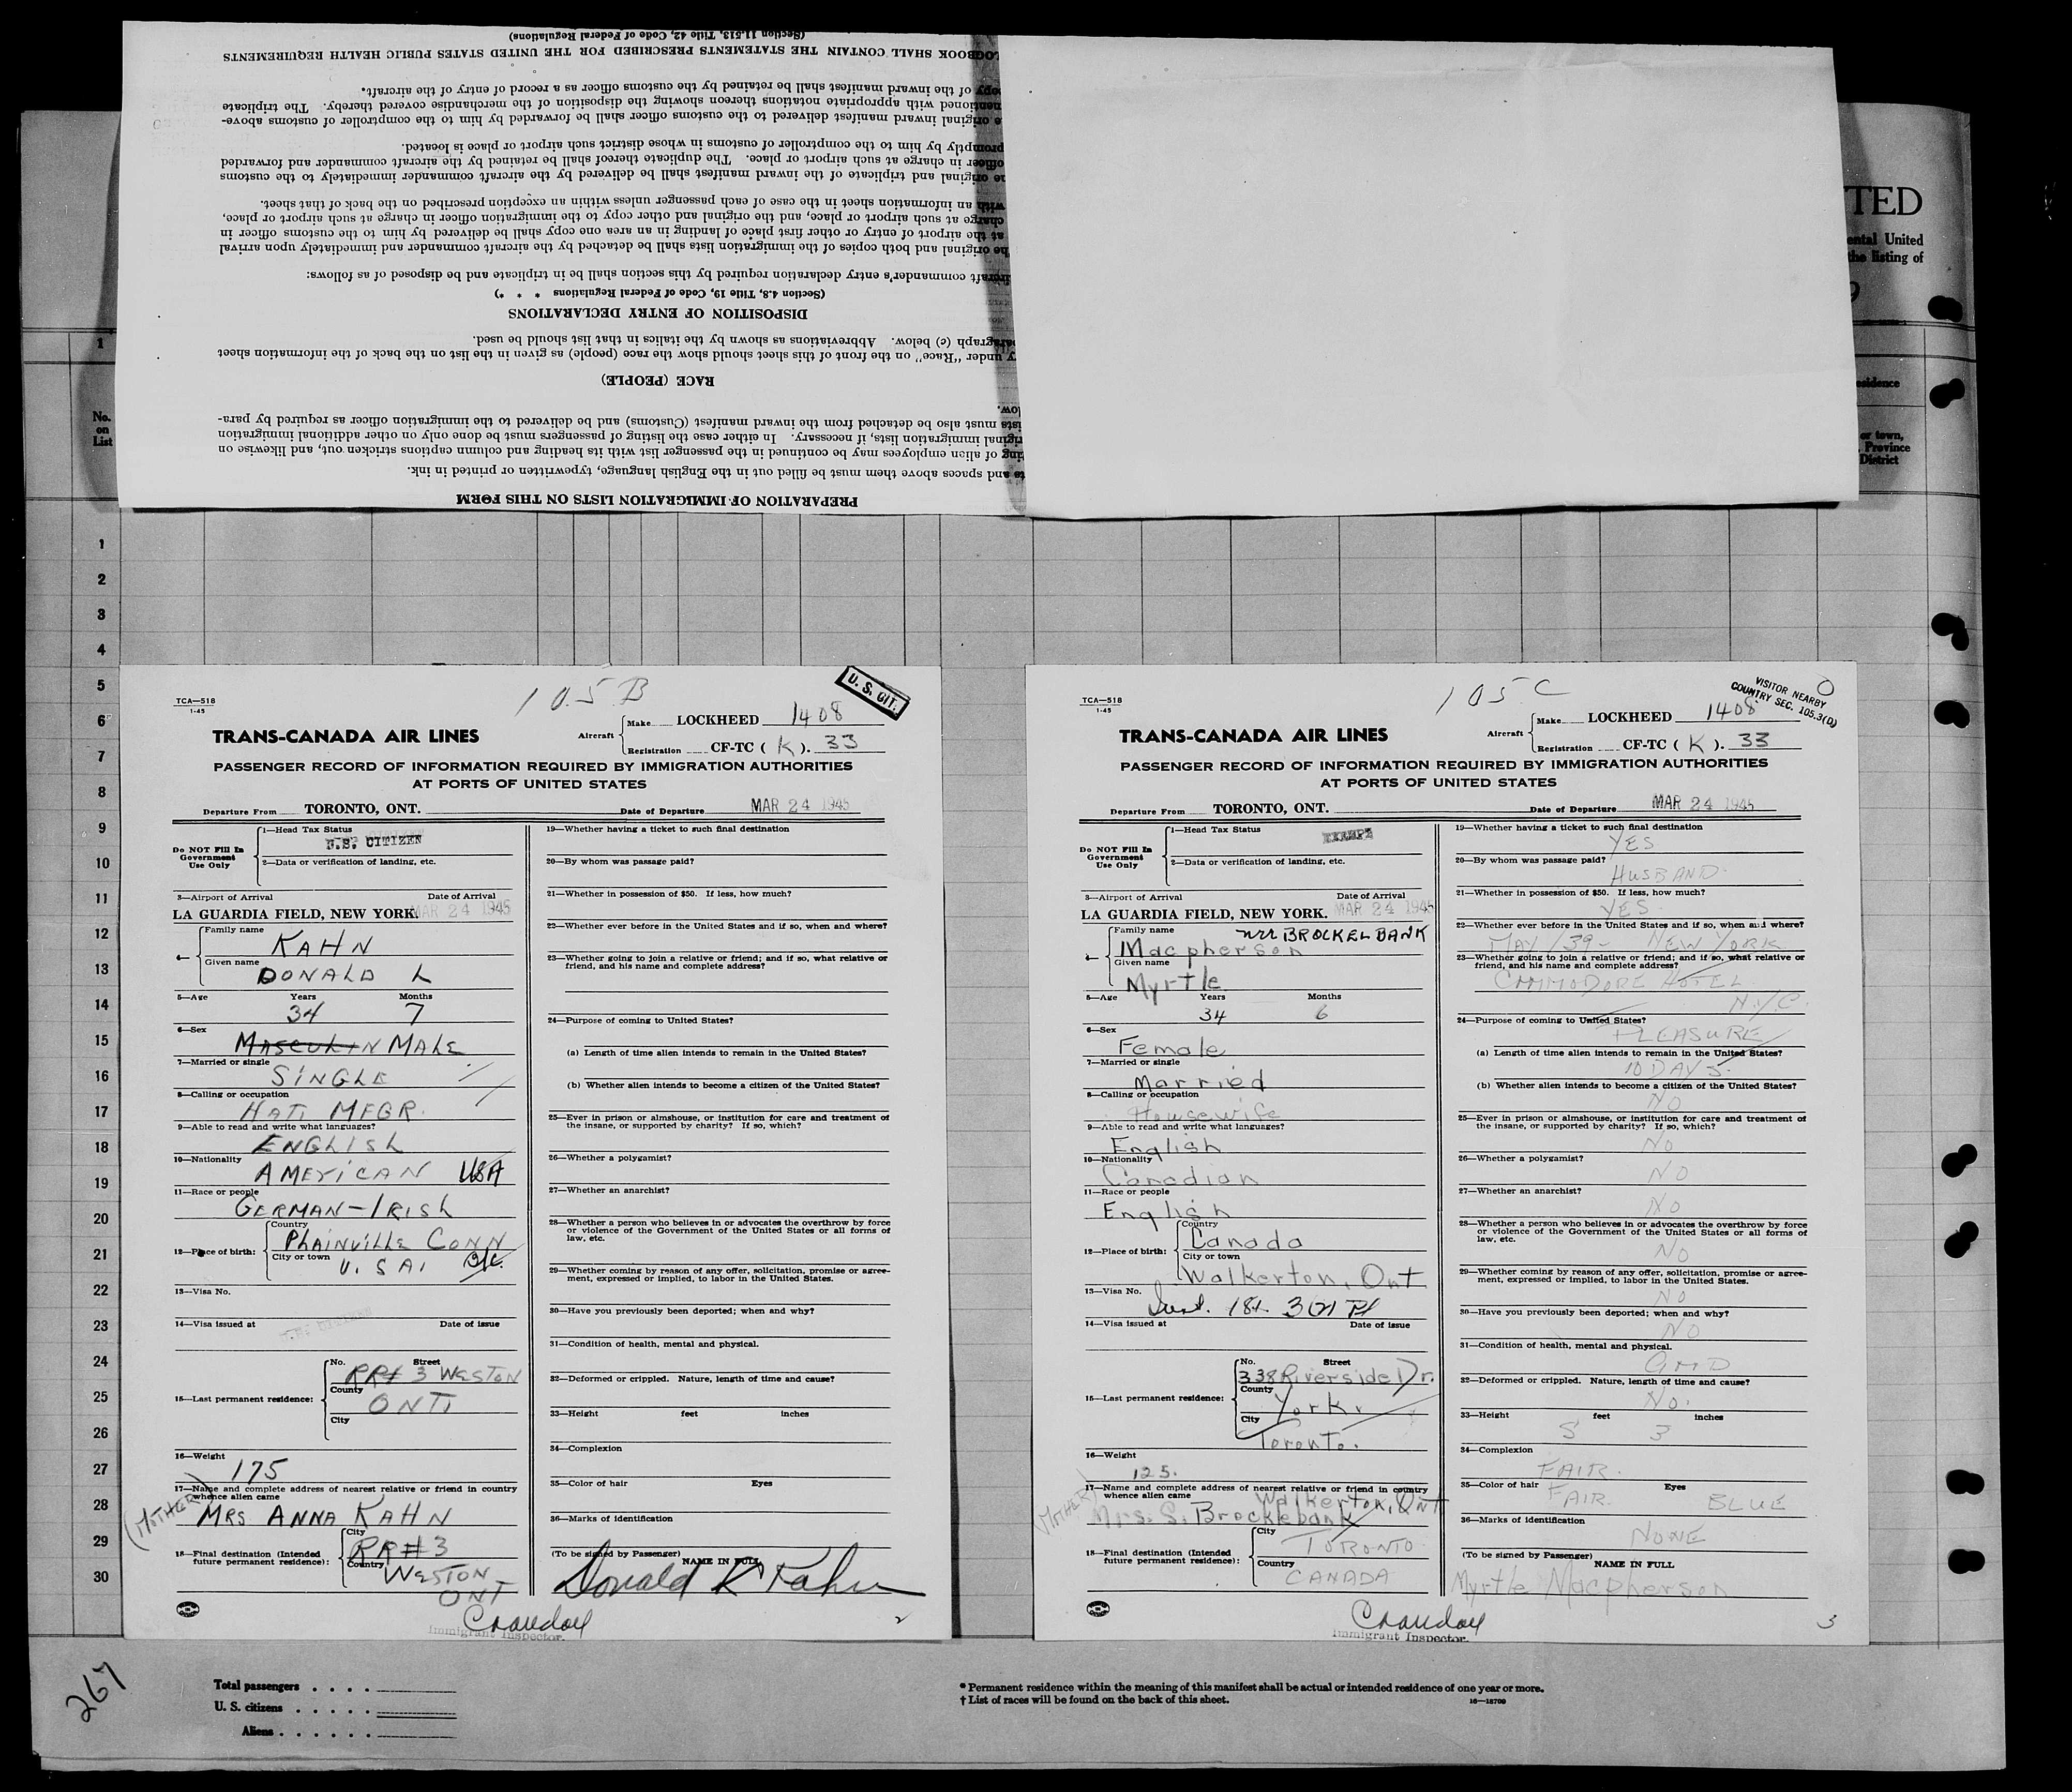 (Section 11.513, Title 42, Code of Federal Regulations)
LOGBOOK SHALL CONTAIN THE STATEMENTS PRESCRIBED FOR THE UNITED STATES PUBLIC HEALTH REQUIREMENTS
of the inward manifest shall be retained by the customs officer as a record of entry of the aircraft.
mentioned with appropriate notations thereon showing the disposition of the merchandise covered thereby. The triplicate
original inward manifest delivered to the customs officer shall be forwarded by him to the comptroller of customs above-
promptly by him to the comptroller of customs in whose district such airport or place is located.
officer in charge at such airport or place. The duplicate thereof shall be retained by the aircraft commander and forwarded
original and triplicate of the inward manifest shall be delivered by the aircraft commander immediately to the customs
with an information sheet in the case of each passenger unless within an exception prescribed on the back of that sheet.
charge at such airport or place, and the original and other copy to the immigration officer in charge at such airport or place,
at the airport of entry or other first place of landing in an area one copy shall be delivered by him to the customs officer in
original and both copies of the immigration lists shall be detached by the aircraft commander and immediately upon arrival
aircraft commander's entry declaration required by this section shall be in triplicate and be disposed of as follows:
(Section 4.8, Title 19, Code of Federal Regulations * * *)
DISPOSITION OF ENTRY DECLARATIONS
paragraph (c) below. Abbreviations as shown by the italics in that list should be used.
under "Race" on the front of this sheet should show the race (people) as given in the list on the back of the information sheet
RACE (PEOPLE)
low.
lists must also be detached from the inward manifest (Customs) and be delivered to the immigration officer as required by para-
original immigration lists, if necessary. In either case the listing of passengers must be done only on other additional immigration
of alien employees may be continued in the passenger list with its heading and column captions stricken out, and likewise on
and spaces above them must be filled out in the English language, typewritten or printed in ink.
PREPARATION OF IMMIGRATION LISTS ON THIS FORM
TED
ental United
the listing of
9
esidence
or town,
Province
District
1
No.
on
List
1
2
3
4
5
6
7
8
9
10
11
12
13
14
15
16
17
18
19
20
21
22
23
24
25
26
27
28
29
30
TCA—518
1-45
105 B
U. S. CIT.
TRANS-CANADA AIR LINES
Aircraft
Make LOCKHEED 1408
Registration CF-TC ( K ). 33
PASSENGER RECORD OF INFORMATION REQUIRED BY IMMIGRATION AUTHORITIES
AT PORTS OF UNITED STATES
Departure From TORONTO, ONT. Date of Departure MAR 24 1945
Do NOT Fill In
Government
Use Only
1—Head Tax Status
U.S. CITIZEN
2—Data or verification of landing, etc.
3—Airport of Arrival Date of Arrival
LA GUARDIA FIELD, NEW YORK. MAR 24 1945
4—
Family name
KAHN
Given name
DONALD L
5—Age Years Months
34 7
6—Sex
MASCULIN MALE
7—Married or single
SINGLE
8—Calling or occupation
HAT, MFGR.
9—Able to read and write what languages?
ENGLISH
10—Nationality
AMERICAN USA
11—Race or people
GERMAN-IRISH
12—Place of birth:
Country
PLAINVILLE CONN
City or town
U. S A.
13—Visa No.
14—Visa issued at Date of issue
U.S. CITIZEN
15—Last permanent residence:
No. Street
RR# 3 WESTON
County
ONT.
City
16—Weight
175
17—Name and complete address of nearest relative or friend in country
whence alien came
(MOTHER)
MRS ANNA KAHN
18—Final destination (Intended
future permanent residence):
City
RR#3
Country
WESTON
ONT
19—Whether having a ticket to such final destination
20—By whom was passage paid?
21—Whether in possession of $50. If less, how much?
22—Whether ever before in the United States and if so, when and where?
23—Whether going to join a relative or friend; and if so, what relative or
friend, and his name and complete address?
24—Purpose of coming to United States?
(a) Length of time alien intends to remain in the United States?
(b) Whether alien intends to become a citizen of the United States?
25—Ever in prison or almshouse, or institution for care and treatment of
the insane, or supported by charity? If so, which?
26—Whether a polygamist?
27—Whether an anarchist?
28—Whether a person who believes in or advocates the overthrow by force
or violence of the Government of the United States or all forms of
law, etc.
29—Whether coming by reason of any offer, solicitation, promise or agree-
ment, expressed or implied, to labor in the United States.
30—Have you previously been deported; when and why?
31—Condition of health, mental and physical.
32—Deformed or crippled. Nature, length of time and cause?
33—Height feet inches
34—Complexion
35—Color of hair Eyes
36—Marks of identification
(To be signed by Passenger) NAME IN FULL
Donald K Kahn
Crandall
Immigrant Inspector.
2
TCA—518
1-45
105 C
O
VISITOR NEARBY
COUNTRY SEC. 105.3(D)
TRANS-CANADA AIR LINES
Aircraft
Make LOCKHEED 1408
Registration CF-TC ( K ). 33
PASSENGER RECORD OF INFORMATION REQUIRED BY IMMIGRATION AUTHORITIES
AT PORTS OF UNITED STATES
Departure From TORONTO, ONT. Date of Departure MAR 24 1945
Do NOT Fill In
Government
Use Only
1—Head Tax Status
EXEMPT
2—Data or verification of landing, etc.
3—Airport of Arrival Date of Arrival
LA GUARDIA FIELD, NEW YORK. MAR 24 1945
4—
Family name née BROCKELBANK
Macpherson
Given name
Myrtle
5—Age Years Months
34 6
6—Sex
Female
7—Married or single
Married
8—Calling or occupation
Housewife
9—Able to read and write what languages?
English
10—Nationality
Canadian
11—Race or people
English
12—Place of birth:
Country
Canada
City or town
Walkerton, Ont
13—Visa No.
14—Visa issued at Date of issue
15—Last permanent residence:
No. Street
338 Riverside Dr.
County
York.
City
Toronto.
16—Weight
125.
17—Name and complete address of nearest relative or friend in country
whence alien came Walkerton, Ont
(MOTHER)
Mrs. S. Brocklebank
18—Final destination (Intended
future permanent residence):
City
TORONTO
Country
CANADA
19—Whether having a ticket to such final destination
YES
20—By whom was passage paid?
HUSBAND.
21—Whether in possession of $50. If less, how much?
YES.
22—Whether ever before in the United States and if so, when and where?
MAY /39- NEW YORK
23—Whether going to join a relative or friend; and if so, what relative or
friend, and his name and complete address?
COMMODORE HOTEL
N.Y.C.
24—Purpose of coming to United States?
PLEASURE
(a) Length of time alien intends to remain in the United States?
10 DAYS.
(b) Whether alien intends to become a citizen of the United States?
NO
25—Ever in prison or almshouse, or institution for care and treatment of
the insane, or supported by charity? If so, which?
NO
26—Whether a polygamist?
NO
27—Whether an anarchist?
NO
28—Whether a person who believes in or advocates the overthrow by force
or violence of the Government of the United States or all forms of
law, etc.
NO
29—Whether coming by reason of any offer, solicitation, promise or agree-
ment, expressed or implied, to labor in the United States.
NO
30—Have you previously been deported; when and why?
NO
31—Condition of health, mental and physical.
32—Deformed or crippled. Nature, length of time and cause?
NO.
33—Height feet inches
5 3
34—Complexion
FAIR.
35—Color of hair Eyes
FAIR. BLUE
36—Marks of identification
NONE
(To be signed by Passenger) NAME IN FULL
Myrtle Macpherson
Crandall
Immigrant Inspector.
3
267
Total passengers . . . .
U. S. citizens . . . . .
Aliens . . . . . .
* Permanent residence within the meaning of this manifest shall be actual or intended residence of one year or more.
† List of races will be found on the back of this sheet. 16—18709